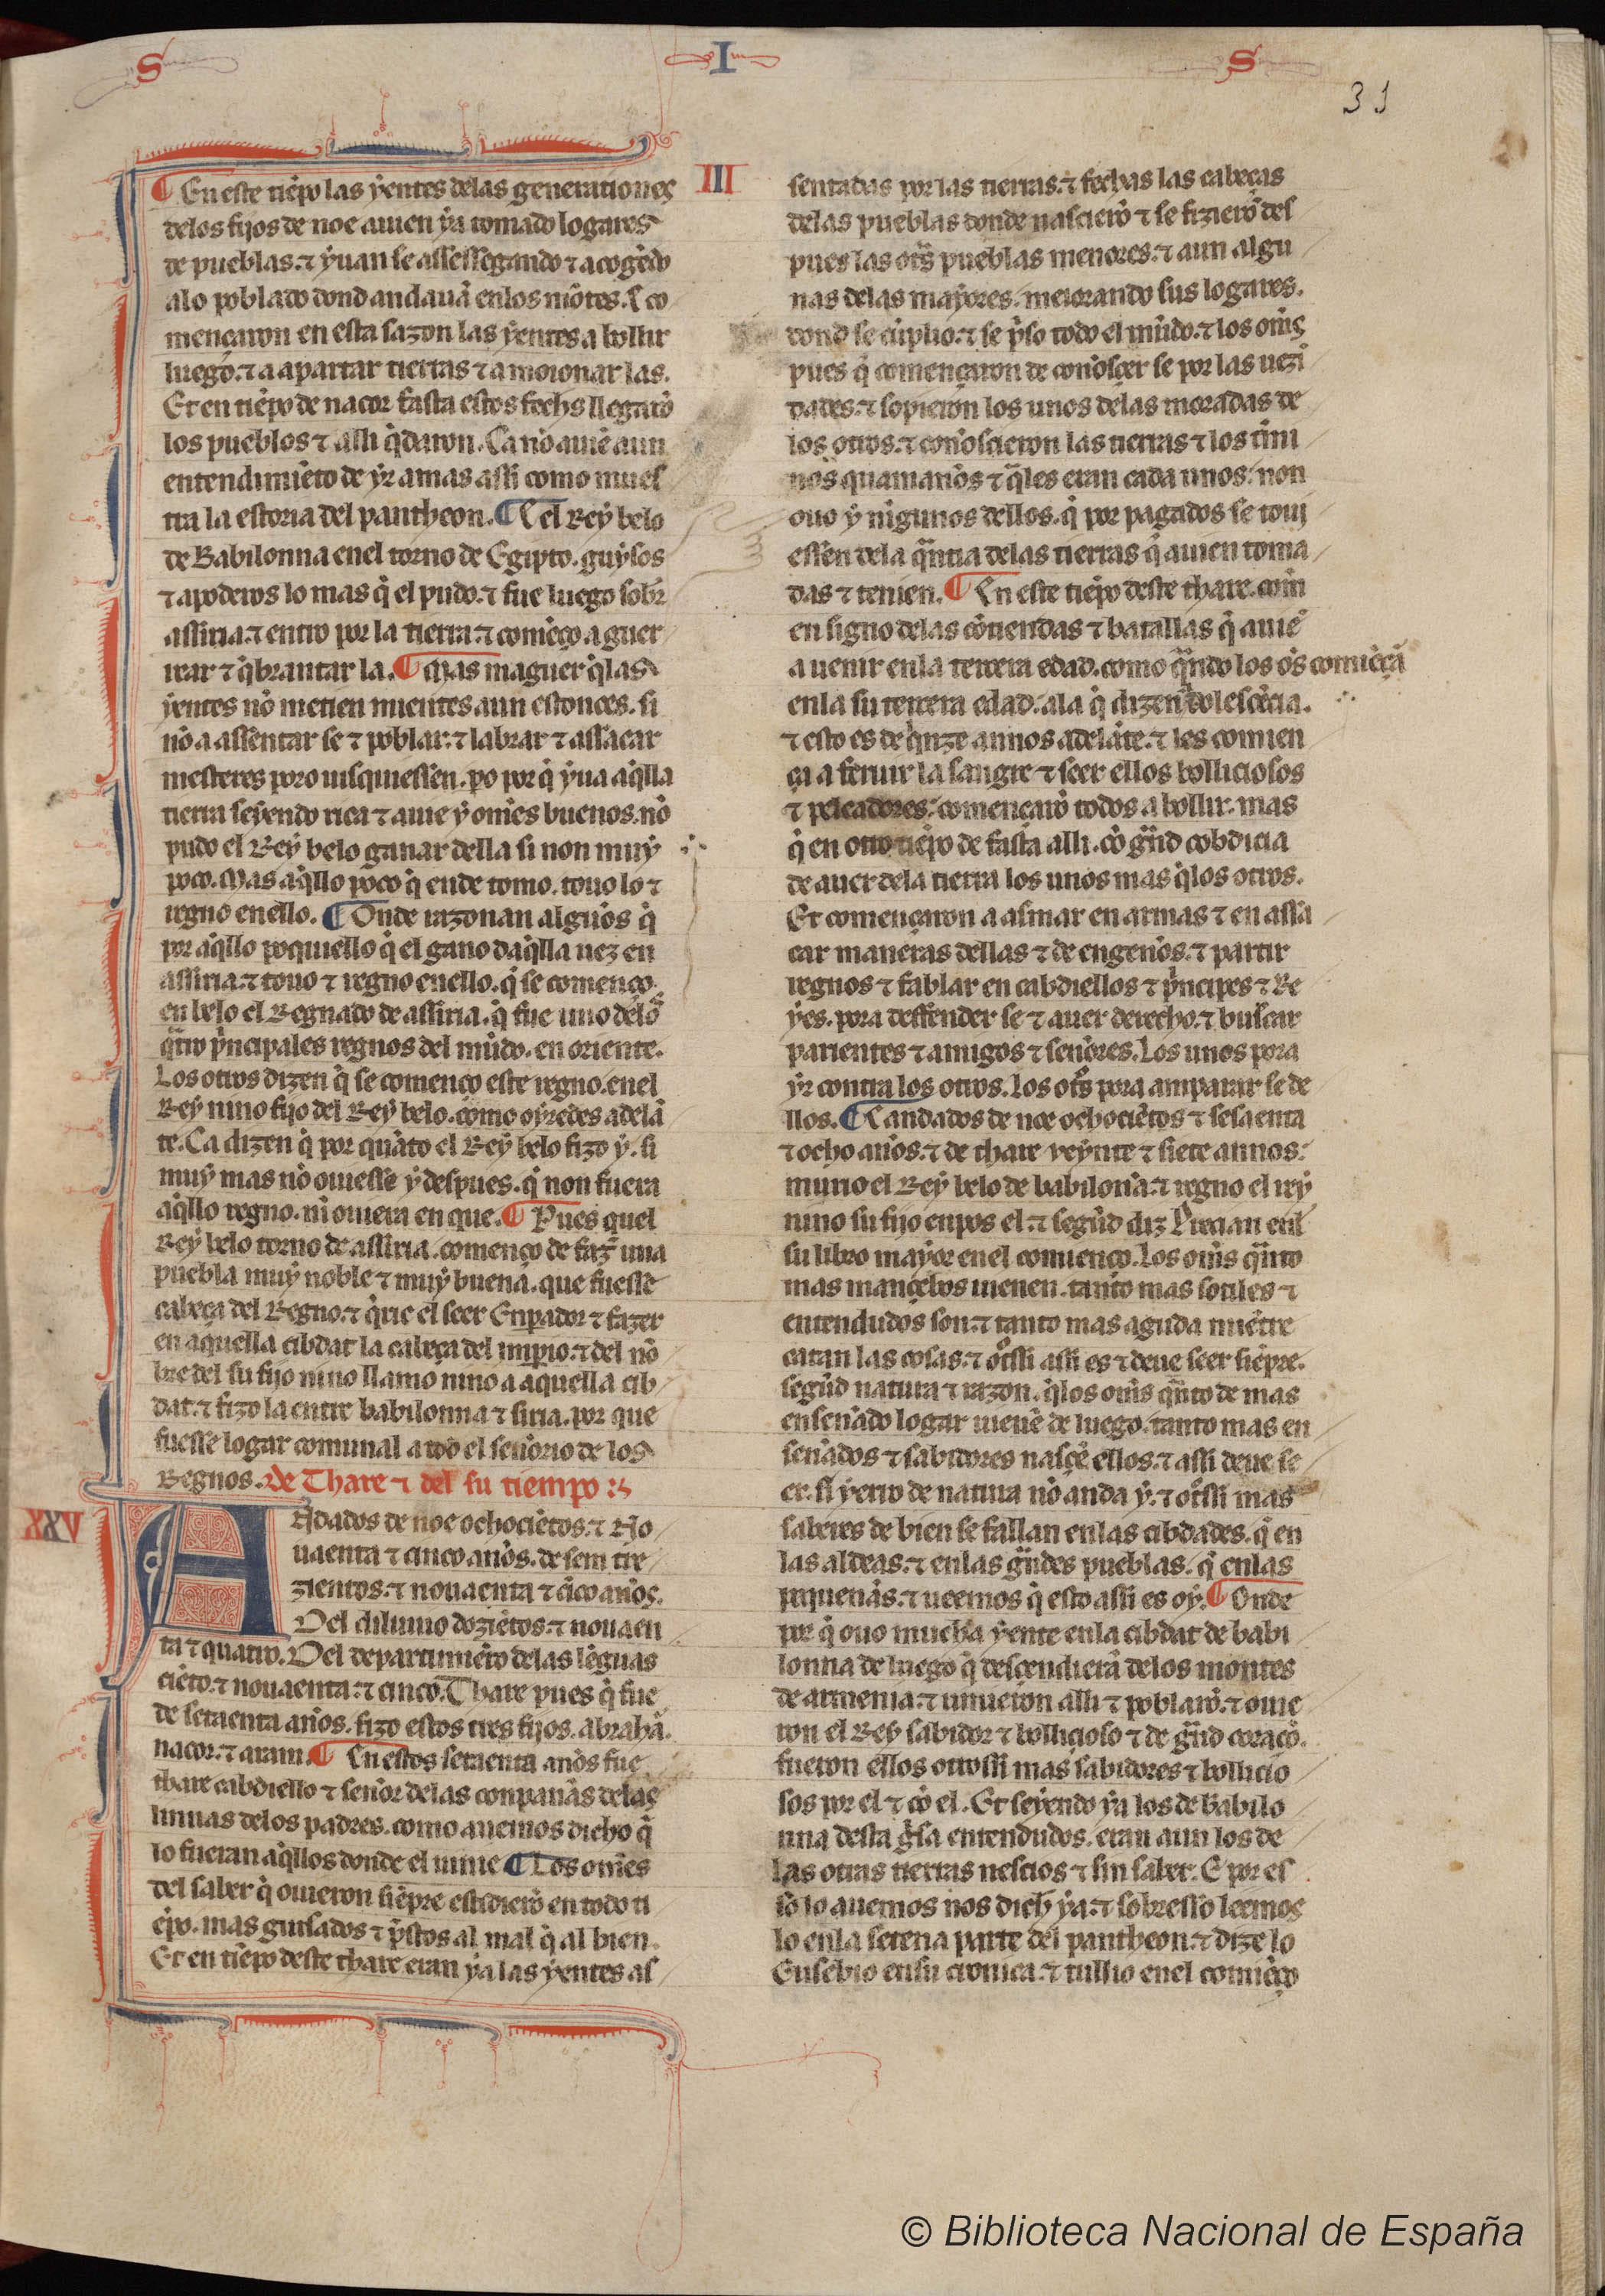 S I S
31
¶ En este tiẽpo las yentes delas generationes
delos fijos de noe auien ya tomado logares
de pueblas. ⁊ yuan se assessegando ⁊ acogẽdo
alo poblado dond andauã enlos mõtes. E co
mençaron en esta sazon las yentes a bollir
luego. ⁊ a apartar tierras ⁊ a moionar las.
Et en tiẽpo de nacor fasta estos fechs llegarõ
los pueblos ⁊ assi q̃daron. Ca nõ auiẽ aun
entendimiẽto de yr amas assi como mues
tra la estoria del pantheon. ¶ E el Rey belo
de Babilonna enel torno de Egipto. guysos
⁊ apoderos lo mas q̃ el pudo. ⁊ fue luego sobr̃
assiria. ⁊ entro por la tierra. ⁊ comẽço a guer
rear ⁊ q̃brantar la. ¶ Mas maguer q̃las
yentes nõ metien mientes aun estonces. si
nõ a assentar se ⁊ poblar. ⁊ labrar ⁊ assacar
mesteres poro uisquiessen. po por q̃ yua aq̃lla
tierra seyendo rica ⁊ auie y om̃es buenos. nõ
pudo el Rey belo ganar della si non muy
poco. Mas aq̃llo poco q̃ ende tomo. touo lo ⁊
regno enello. ¶ Onde razonan algunos q̃
por aq̃llo poquiello q̃ el gano daq̃lla uez en
assiria. ⁊ touo ⁊ regno enello. q̃ se començo
en belo el Regnado de assiria. q̃ fue uno delos
q̃tro p̃ncipales regnos del mũdo. en oriente.
Los otros dizen q̃ se començo este regno. enel
Rey nino fijo del Rey belo. como oyredes adelã
te. Ca dizen q̃ por quãto el Rey belo fizo y. si
muy mas nõ ouiesse y despues. q̃ non fuera
aq̃llo regno. ni ouiera en que. ¶ Pues quel
Rey belo torno de assiria. començo de faz̃ una
puebla muy noble ⁊ muy buena. que fuesse
cabeça del Regno. ⁊ q̃rie el seer Enp̃ador ⁊ fazer
en aquella cibdat la cabeça del imp̃io. ⁊ del nõ
bre del su fijo nino llamo nino a aquella cib
dat. ⁊ fizo la entre babilonna ⁊ siria. por que
fuesse logar comunal a todo el señorio de los
Regnos. de Thare ⁊ del su tiempo
XXV
ANdados de noe ochociẽtos. ⁊ No
uaenta ⁊ cinco anõs. de sem tre
zientos. ⁊ nouaenta ⁊ cĩco anõs.
Del diluuio doziẽtos. ⁊ nouaen
ta ⁊ quatro. Del departimiẽto delas lẽguas
ciẽto. ⁊ nouaenta. ⁊ cinco. Thare pues q̃ fue
de setaenta anõs. fizo estos tres fijos. abrahã.
nacor. ⁊ aram. ¶ En estos setaenta anõs fue
thare cabdiello ⁊ senõr delas conpanãs delas
linnas delos padres. como auemos dicho q̃
lo fueran aq̃llos donde el uinie ¶ Los om̃es
del saber q̃ ouieron siẽpre estidierõ en todo ti
ẽpo. mas guisados ⁊ p̃stos al mal q̃ al bien.
Et en tiẽpo deste thare eran ya las yentes as
III
sentadas por las tierras. ⁊ fechas las cabeças
delas pueblas donde nascierõ ⁊ se fizierõ des
pues las otr̃s pueblas menores. ⁊ aun algu
nas delas mayores. meiorando sus logares.
dond se cũplio. ⁊ se p̃so todo el mũdo. ⁊ los om̃s
pues q̃ començaron de conõsçer se por las uezi
dades. ⁊ sopieron los unos delas moradas de
los otros. ⁊ conõscieron las tierras ⁊ los t̃mi
nos quamanõs ⁊ q̃les eran cada unos. non
ouo y nigunos dellos. q̃ por pagados se toui
essẽn dela q̃ntia delas tierras q̃ auien toma
das ⁊ tenien. ¶ En este tiẽpo deste thare. com̃
en signo delas cõtiendas ⁊ batallas q̃ auiẽ
a uenir enla tercera edad. como q̃ndo los om̃s comiẽçã
enla su tercera edad. ala q̃ dizen adolescẽcia.
⁊ esto es de q̃nze annos adelãte. ⁊ les comien
ça a feruir la sangre ⁊ seer ellos bolliciosos
⁊ peleadores. començarõ todos a bollir. mas
q̃ en otro tiẽpo de fasta alli. cõ grãd cobdicia
de auer dela tierra los unos mas q̃los otros.
Et començaron a asmar en armas ⁊ en assa
car maneras dellas ⁊ de engenõs. ⁊ partir
regnos ⁊ fablar en cabdiellos ⁊ p̃ncipes ⁊ Re
yes. pora deffender se ⁊ auer derecho. ⁊ buscar
parientes ⁊ amigos ⁊ senõres. Los unos pora
yr contra los otros. Los otr̃s pora amparar se de
llos. ¶ E andados de noe ochociẽtos ⁊ sesaenta
⁊ ocho anõs. ⁊ de thare veynte ⁊ siete annos.
murio el Rey belo de babilonã. ⁊ regno el rey
nino su fijo enpos el. ⁊ segũd diz Precian enl
su libro mayor enel comienço. Los om̃s q̃nto
mas mançebos uienen. tanto mas sotiles ⁊
entendudos son. ⁊ tanto mas aguda miẽtre
catan las cosas. ⁊ otr̃ssi assi es ⁊ deue seer siẽpre.
segũd natura ⁊ razon. q̃los om̃s q̃nto de mas
ensenãdo logar uienẽ de luego. tanto mas en
senãdos ⁊ sabidores nasçẽ ellos. ⁊ assi deue se
er. si yerro de natura nõ anda y. ⁊ otr̃ssi mas
saberes de bien se fallan enlas cibdades. q̃ en
las aldeas. ⁊ enlas grãdes pueblas. q̃ enlas
pequenãs. ⁊ ueemos q̃ esto assi es oy. ¶ Onde
por q̃ ouo mucha yente enla cibdat de babi
lonna de luego q̃ desçendierã delos montes
de armenia. ⁊ uinieron alli ⁊ poblarõ. ⁊ ouie
ron el Rey sabidor ⁊ bollicioso ⁊ de grãd coraçõ.
fueron ellos otrossi mas sabidores ⁊ bollicio
sos por el ⁊ cõ el. Et seyendo ya los de Babilo
nna desta g̃sa entendudos. eran aun los de
las otras tierras nescios ⁊ sin saber. E por es
so lo auemos nos dich̃ ya. ⁊ sobresso leemos
lo enla setena parte del pantheon. ⁊ dize lo
Eusebio ensu cronica. ⁊ tullio enel comiẽço
© Biblioteca Nacional de España